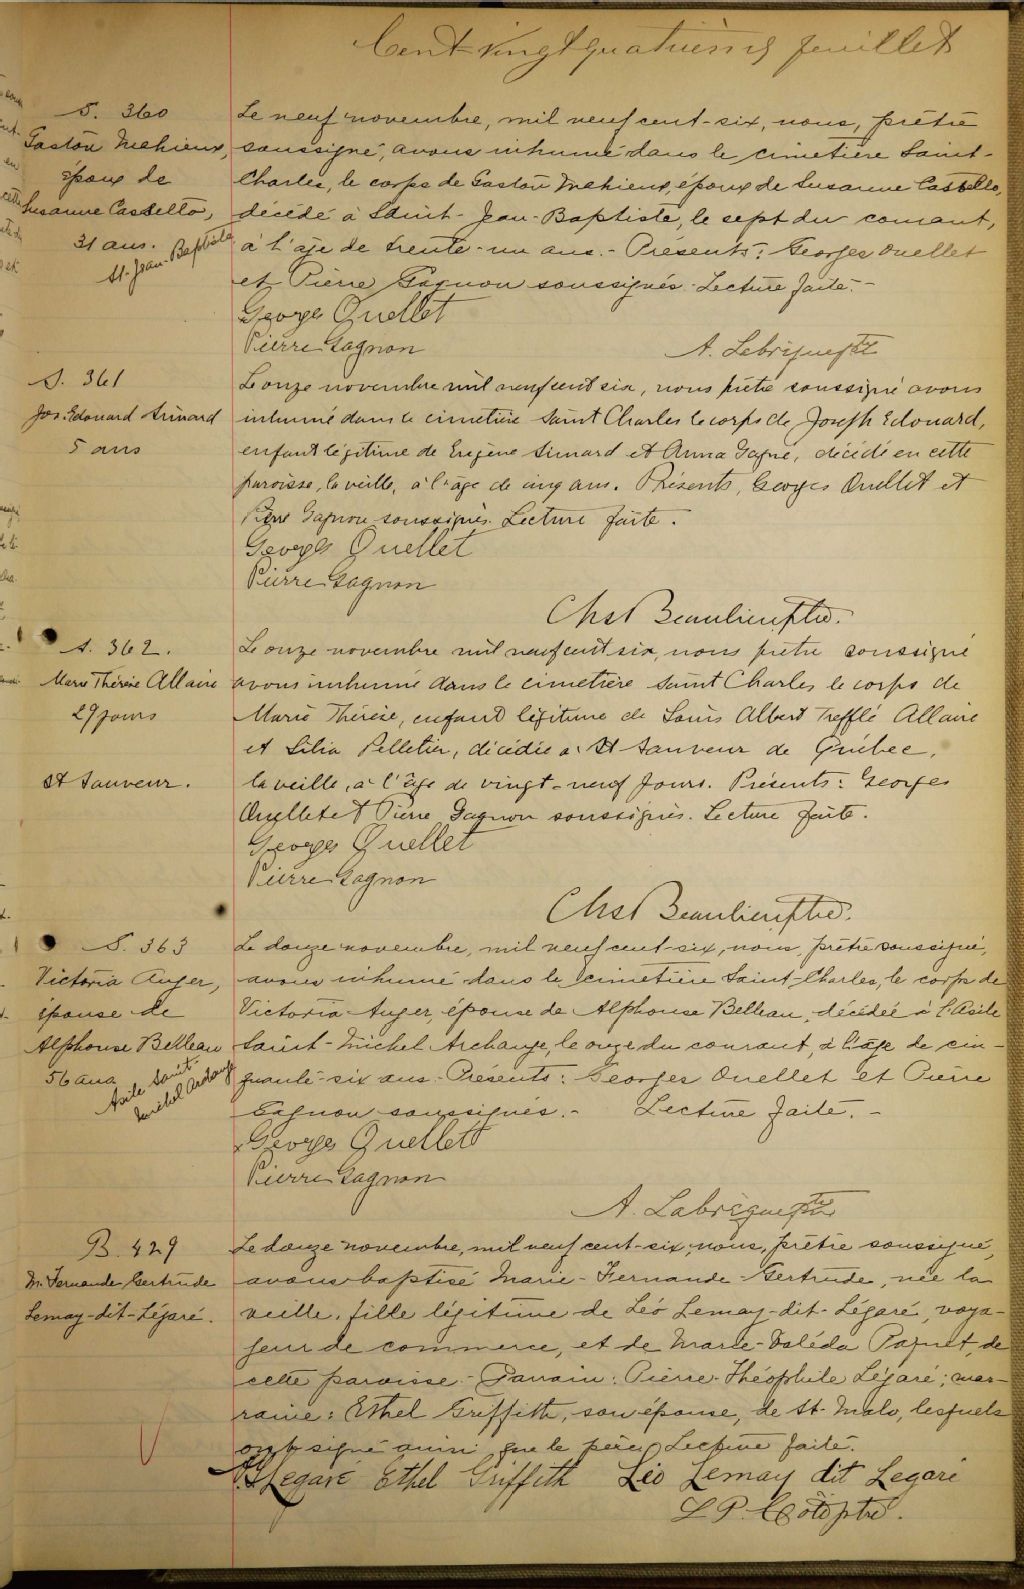 Cent vingt quatrième feuillet
S. 360
Gaston Mahieux,
époux de
Susanne Castello,
31 ans.
St-Jean-Baptiste
Le neuf novembre, mil neuf cent-six, nous, prêtre
soussigné, avons inhumé dans le cimetière Saint-
Charles, le corps de Gaston Mahieux, époux de Susanne Castello,
décédé à Saint-Jean-Baptiste, le sept du courant,
à l'age de trente-un ans.- Présents: Georges Ouellet
et Pierre Gagnon soussignés. Lecture faite.-
Georges Ouellet
Pierre Gagnon
A. Labrèque ptre
S. 361
Jos. Edouard Simard
5 ans
Le onze novembre mil neuf cent six, nous prêtre soussigné avons
inhumé dans le cimetière Saint Charles le corps de Joseph Edouard,
enfant légitime de Eugène Simard et Anna Gagné, décédé en cette
paroisse, la veille, à l'age de cinq ans. Présents, Georges Ouellet et
Pierre Gagnon soussignés. Lecture faite.
Georges Ouellet
Pierre Gagnon
Chs Beaulieu ptre.
S. 362.
Marie Thérèse Allaire
29 jours
St Sauveur.
Le onze novembre mil neuf cent six, nous prêtre soussigné
avons inhumé dans le cimetière Saint Charles le corps de
Marie Thérèse, enfant légitime de Louis Albert Trefflé Allaire
et Lilia Pelletier, décédée à St Sauveur de Québec,
la veille, à l'âge de vingt-neuf jours. Présents: Georges
Ouellet et Pierre Gagnon soussignés. Lecture faite.
Georges Ouellet
Pierre Gagnon
Chs Beaulieu ptre.
S. 363
Victoria Auger,
épouse de
Alphonse Belleau
56 ans
Asile Saint-
Michel Archange
Le douze novembre, mil neuf cent-six, nous, prêtre soussigné,
avons inhumé dans le cimetière Saint-Charles, le corps de
Victoria Auger, épouse de Alphonse Belleau, décédée à l'Asile
Saint-Michel Archange, le onze du courant, à l'âge de cin-
quante-six ans.- Présents: Georges Ouellet et Pierre
Gagnon soussignés.- Lecture faite.-
Georges Ouellet
Pierre Gagnon
A. Labrèque ptre
B. 429
M. Fernande Gertrude
Lemay-dit-Légaré.
Le douze novembre, mil neuf cent-six, nous, prêtre soussigné,
avons baptisé Marie-Fernande-Gertrude, née la
veille, fille légitime de Léo Lemay-dit-Légaré, voya-
geur de commerce, et de Marie-Valéda Paquet, de
cette paroisse.- Parrain: Pierre-Théophile Légaré; mar-
raine: Ethel Griffith, son épouse, de St-Malo, lesquels
ont signé ainsi que le père. Lecture faite.
Legaré Ethel Griffith Léo Lemay dit Legaré
L. P. Côté ptre.